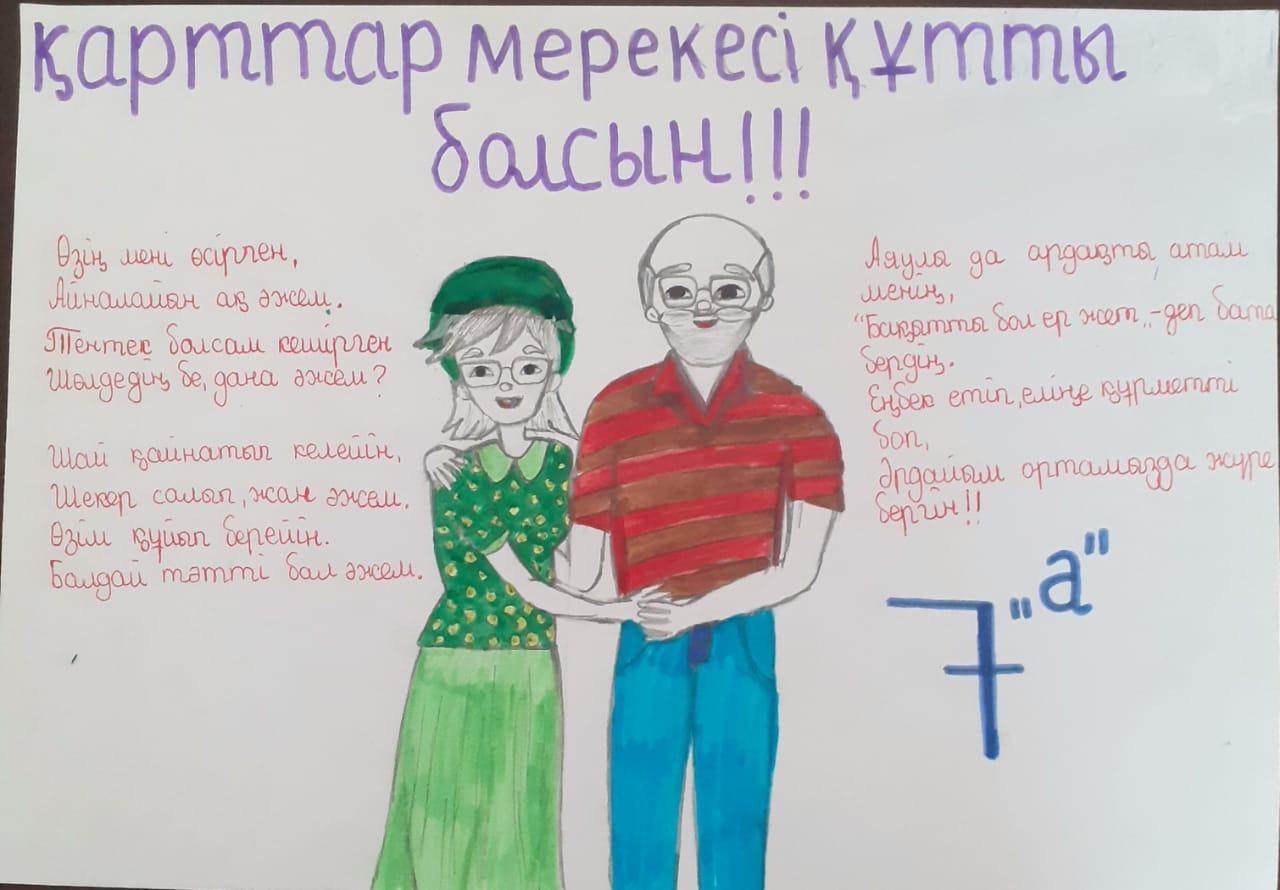 қарттар мерекесі құтты
болсын!!!
Өзің мені өсірген,
Айналайын ақ әжем.
Тентек болсам кешірген
Шөлдедің бе, дана әжем?
Шай қайнатып келейін,
Шекер салып, жан әжем.
Өзім құйып берейін.
Балдай тәтті бал әжем.
Аяулы да ардақты, атам
менің,
"Бақытты бол ер жет„-деп бата
бердің.
Еңбек етіп, еліңе құрметті
боп,
Әрдайым ортамызда жүре
бергін!!
7 "а"